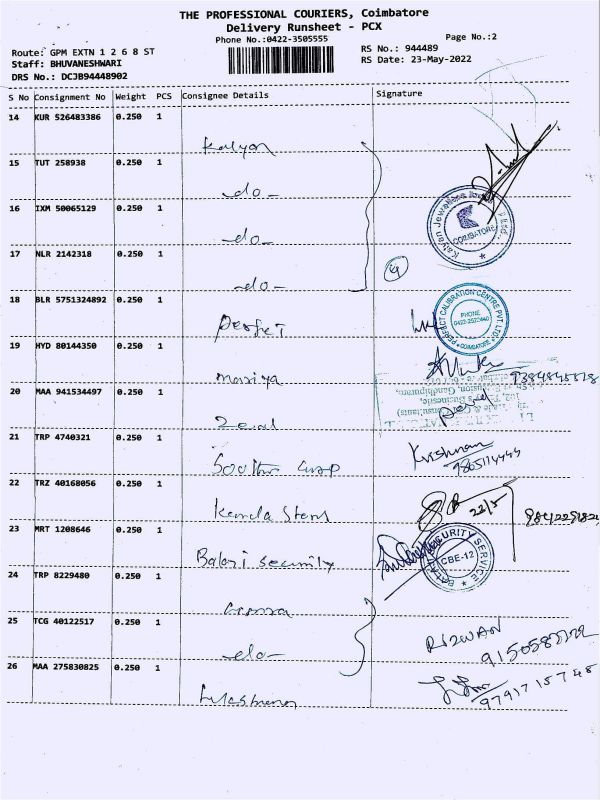 THE PROFESSIONAL COURIERS, Coimbatore
Delivery Runsheet - PCX
Phone No.:0422-3505555
Page No.:2
Route: GPM EXTN 1 2 6 8 ST
RS No.: 944489
Staff: BHUVANESHWARI
RS Date: 23-May-2022
DRS No.: DCJB94448902
S No Consignment No Weight PCS Consignee Details Signature
14 KUR 526483386 0.250 1
Kalyan
15 TUT 258938 0.250 1
-do-
16 IXM 50065129 0.250 1
-do-
Kalyan Jewellers
COIMBATORE
17 NLR 2142318 0.250 1
-do-
4
18 BLR 5751324892 0.250 1
Perfect
PERFECT CALIBRATION CENTRE PVT LTD.
PHONE
COIMBATORE
19 HYD 80144350 0.250 1
20 MAA 941534497 0.250 1
Zonal
21 TRP 4740321 0.250 1
Krishnan
22 TRZ 40168056 0.250 1
Kamla Stern
22/5
23 MRT 1208646 0.250 1
Balaji Security
SECURITY SERVICE
CBE-12
24 TRP 8229480 0.250 1
25 TCG 40122517 0.250 1
-do-
RIZWAN
26 MAA 275830825 0.250 1
9791715748